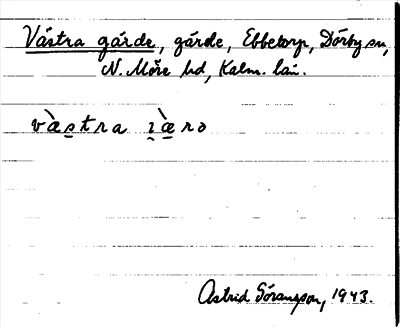 Västra gärde, gärde, Ebbetorp, Dörby sn,
N. Möre hd, Kalm. län.
và̀æs̲tra ɪ̲̀æ̲ro
Astrid Göransson, 1943.